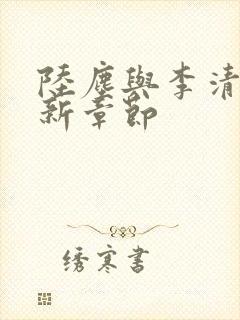 陸塵與李清
新章節
绣寒書